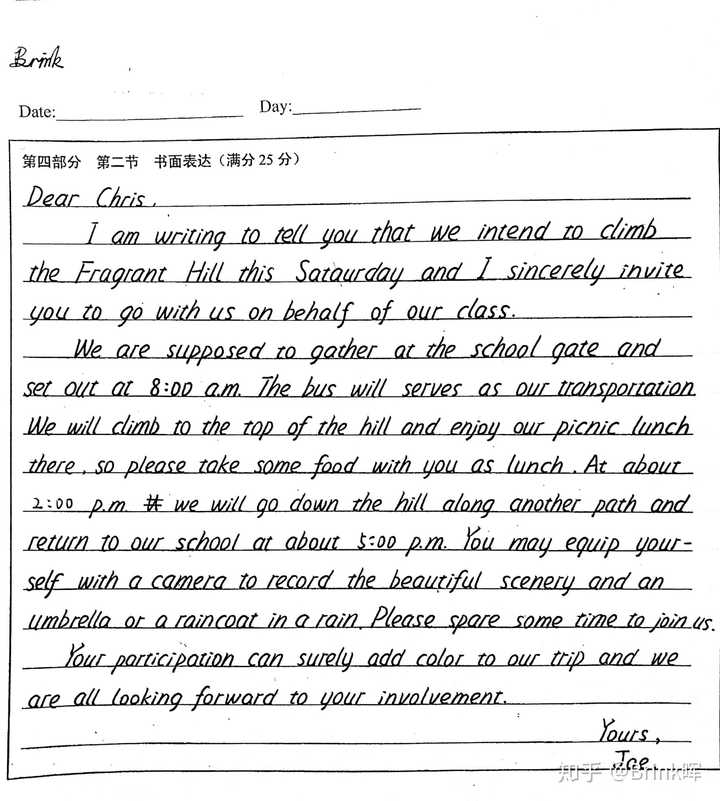 Brink
Date: Day:
第四部分 第二节 书面表达（满分 25 分）
Dear Chris,
I am writing to tell you that we intend to climb
the Fragrant Hill this Sataurday and I sincerely invite
you to go with us on behalf of our class.
We are supposed to gather at the school gate and
set out at 8:00 a.m. The bus will serves as our transportation
We will climb to the top of the hill and enjoy our picnic lunch
there, so please take some food with you as lunch. At about
2:00 p.m. we will go down the hill along another path and
return to our school at about 5:00 p.m. You may equip your-
self with a camera to record the beautiful scenery and an
umbrella or a raincoat in a rain. Please spare some time to join us.
Your participation can surely add color to our trip and we
are all looking forward to your involvement.
Yours,
Joe.
知乎 @Brink晖